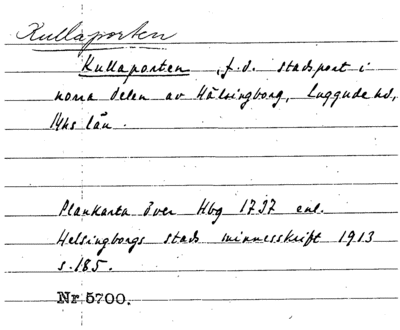 Kullaporten
Kullaporten, f.d. stadsport i
norra delen av Hälsingborg, Luggude hd,
Mhs län.
Plankarta över Hbg 1737 enl.
Helsingborgs stads minnesskrift 1913
s. 185.
Nr 5700.